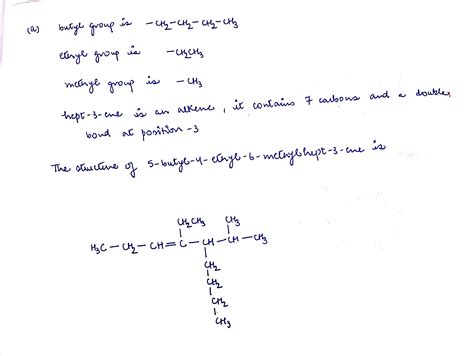 (a) butyl group is —CH2—CH2—CH2—CH3
ethyl group is —CH2CH3
methyl group is —CH3
hept-3-ene is an alkene, it contains 7 carbons and a double
bond at position-3
The structure of 5-butyl-4-ethyl-6-methylhept-3-ene is
CH2CH3 CH3
H3C—CH2—CH=C—CH—CH—CH3
CH2
CH2
CH2
CH3